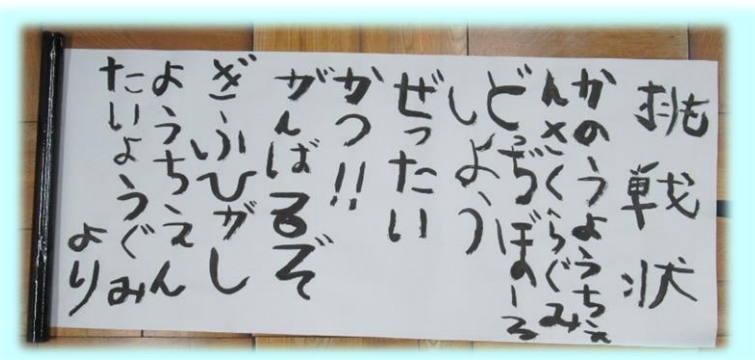 挑戦状
かのうようちえ
んさくらぐみ
どっぢぼのーる
しよう
ぜったい
かつ!!
がんばるぞ
ぎふひがし
ようちえん
たいようぐみ
より